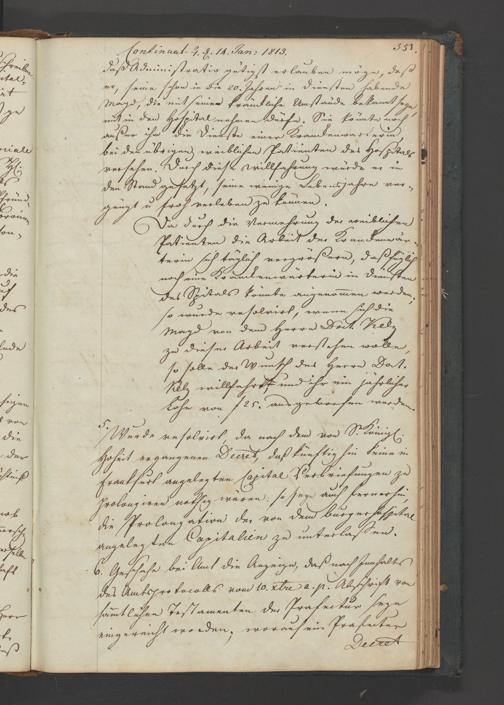 Continuat. d. d. 14. Jan: 1813.
353.
daß Administratio gütigst erlauben möge, daß
er, seine schon in die 20. Jahren in Diensten habende
Magd, die mit seinen Umstände bekannt sey,
mit in den Hospital nehmen dürfe. Sie könnte noch
außer ihm die Dienste einer Krankenwärterin,
bei den übrigen weiblichen Patienten des Hospitals
versehen. Durch diese Willfahrung würde er in
den Stand gesetzt, seine wenige Lebensjahre ver-
gnügt u froh verleben zu können.
Da durch die Vermehrung der weiblichen
Patienten die Arbeit der Krankenwär-
terin sich täglich vergrößern, daß füglich
noch eine Krankenwärterin in Diensten
des Spitals könnte angenommen werden,
so wurde resolvirt, wenn sich die
Magd von dem Herrn Doct.
zu dieser Arbeit verstehen wolle,
so solle der Wunsch des Herrn Doct.
willfahrt und ihr ein jährlicher
Lohn von f 25. ausgeworfen werden.
5. Wurde resolvirt, da nach dem von Sr. Königl.
Hoheit ergangenen Decret, daß künftig hin keine in
Frankfurt angelegten Capital Verbriefungen zu
prolongiren nöthig wären: so sey auch fernerhin,
die Prolongation der von dem Burgerhospital
angelegten Capitalien zu unterlassen.
6. Geschahe bei Amt die Anzeige, daß nach Innhalts
des Amtsprotocolls vom 10. xbre a. p. Abschrift von
sämtlichen Testamenten der Praefectur seye
eingereicht worden, worauf ein Praefectur
Decret